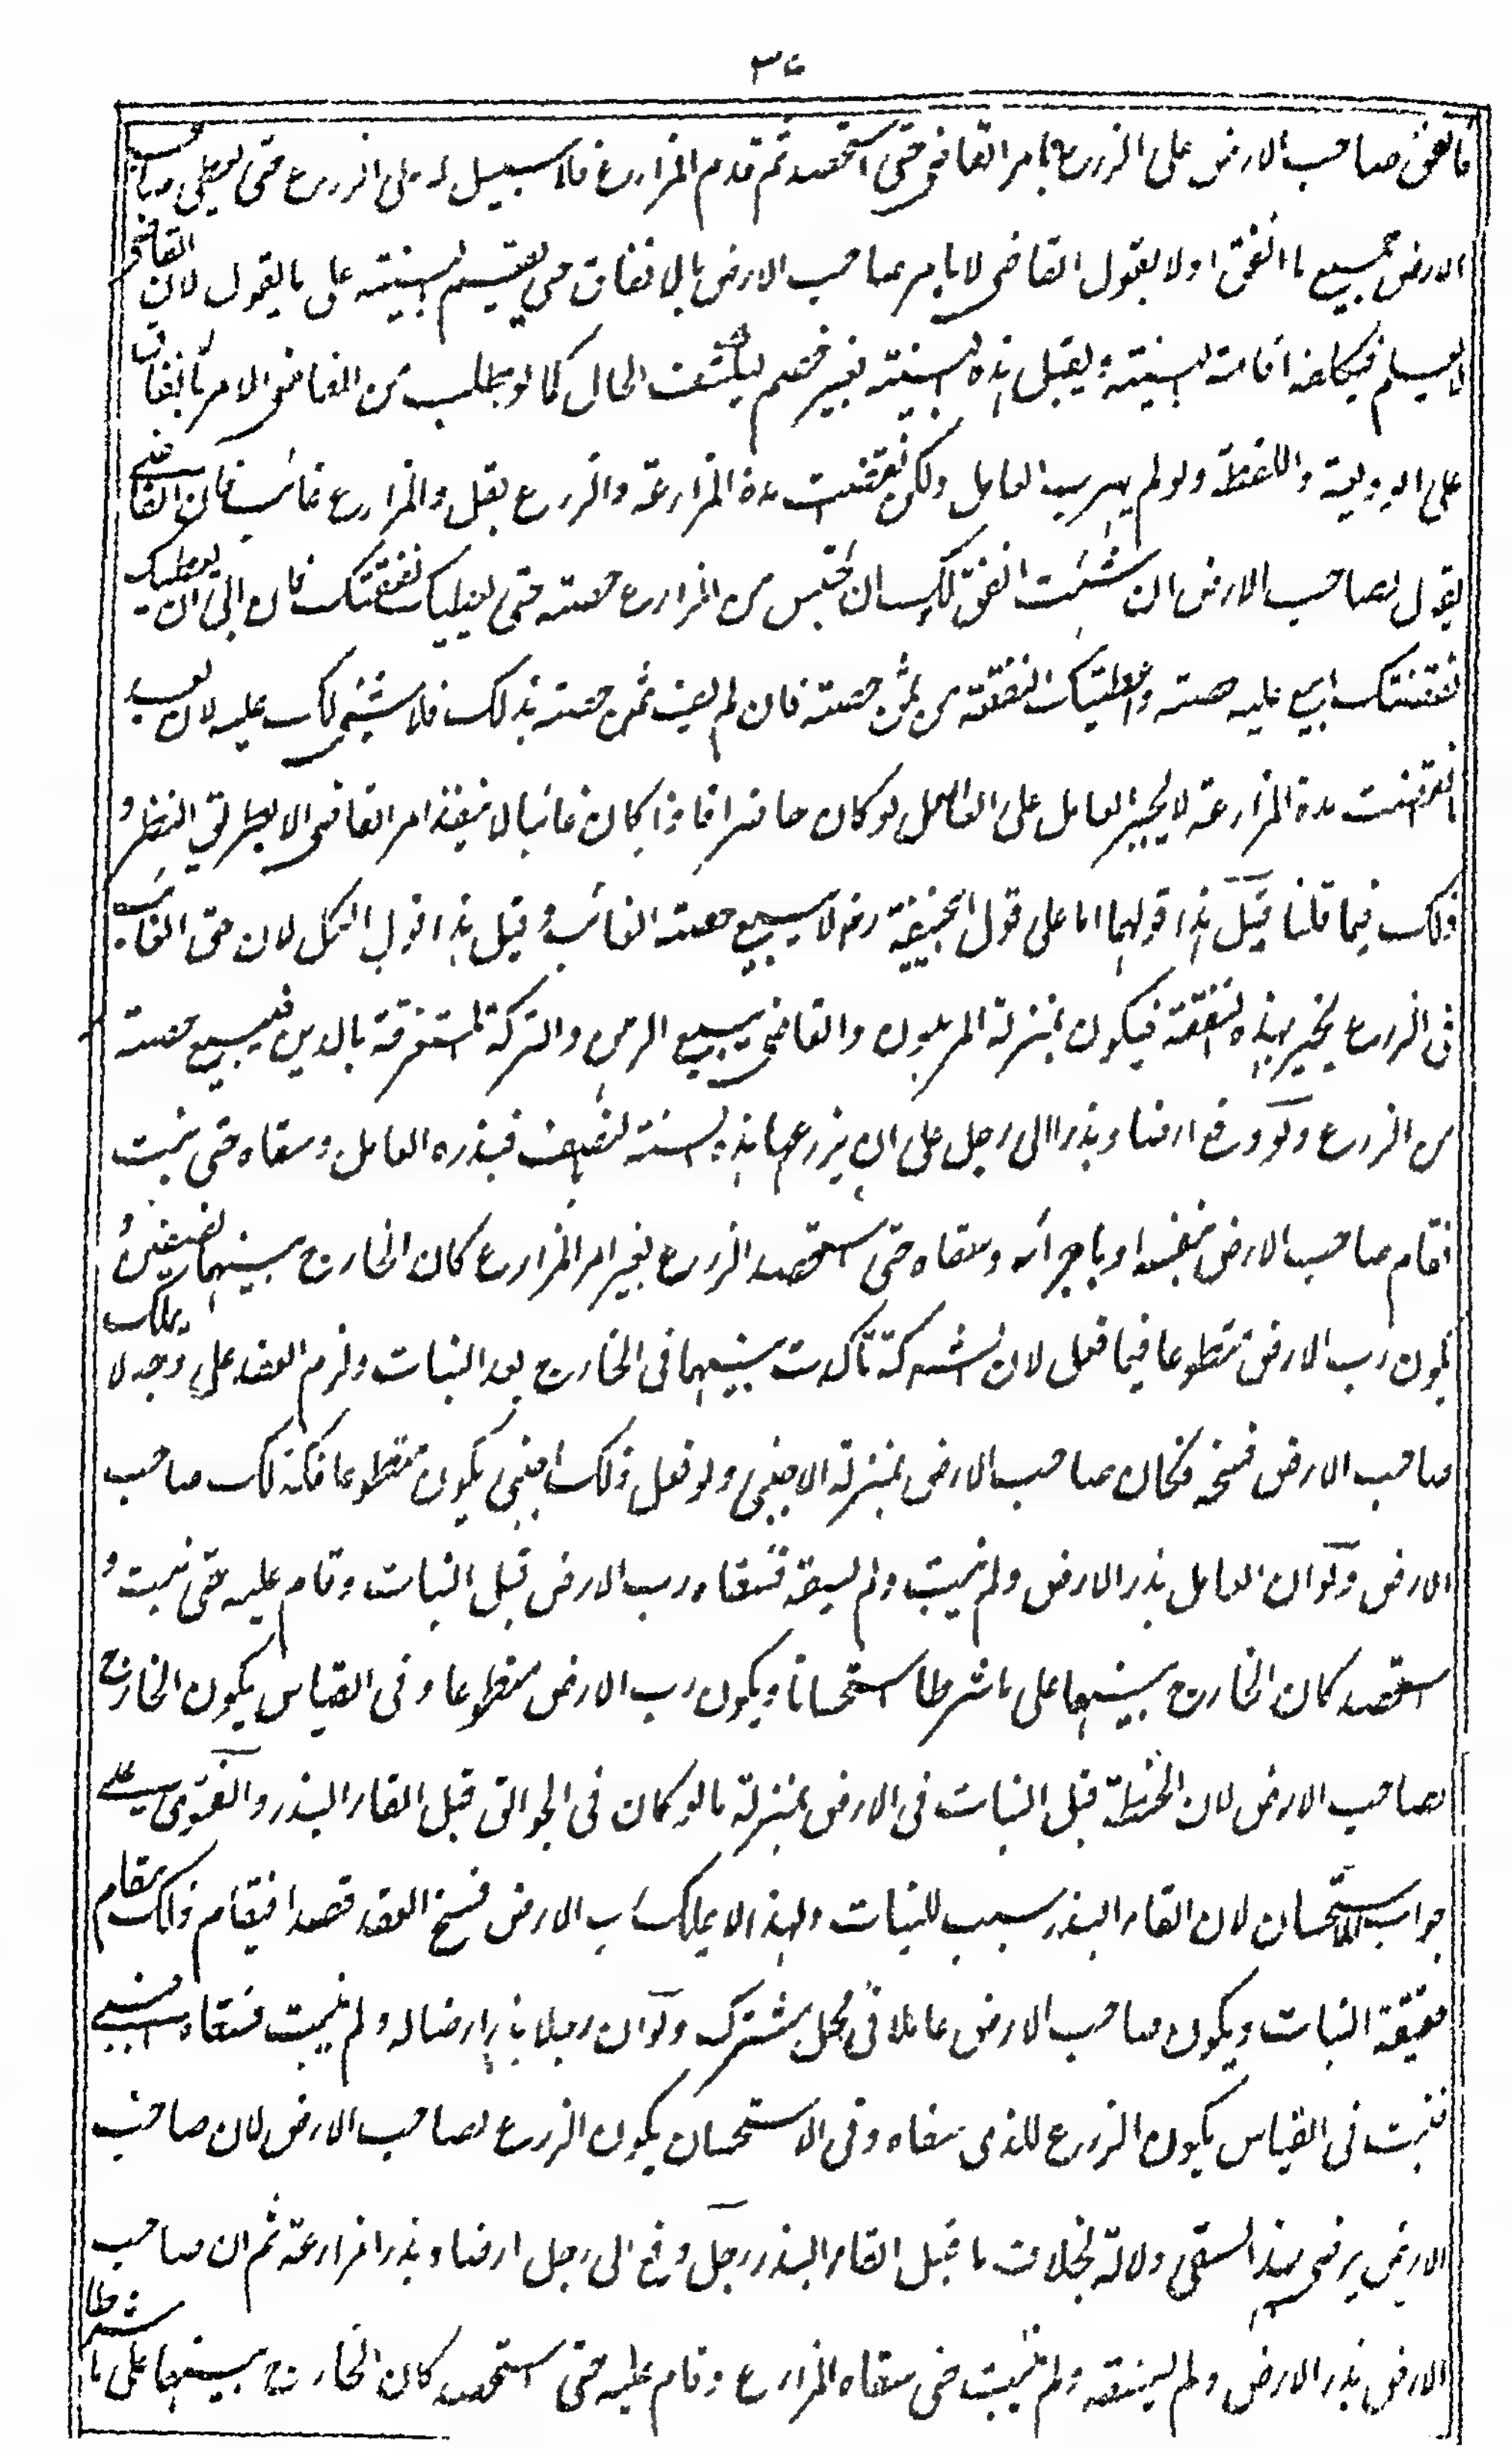 ٣٧
فانفق صاحب الارض على الزرع بامر القاضى حتى استحصد ثم قدم المزارع فلا سبيل له على الزرع حتى يعطى صاحب
الارض جميع ما انفق اولا يقول القاضى لا يامر صاحب الارض بالانفاق حتى يقيم البينة على ما يقول لان القاضى
لا يعلم فيكلفه اقامة البينة ويقبل هذه البينة بغير خصم ليكشف الحال كما لو طلب من القاضى الامر بالانفاق
على الوديعة واللقطة ولو لم يهرب العامل ولكن انقضت مدة المزارعة والزرع بقل والمزارع غائب فان القاضى
يقول لصاحب الارض ان شئت انفق لك ان تحبس من المزارع حصته حتى يعطيك نفقتك فان ابى ان يعطيك
نفقتك ابيع عليه حصته واعطيتك النفقة من ثمن حصته فان لم يف ثمن حصته بذلك فلا شيئ لك عليه لان بعد
ما انقضت مدة المزارعة لا يجبر العامل على العمل لو كان حاضرا فاذا كان غائبا لا ينفذ امر القاضى الا بطريق النظر و
ذلك فيما قلنا قيل هذا قولهما اما على قول ابيحنيفة رح لا يبيع حصة الغائب وقيل هذا قول الكل لان حق الغائب
فى الزرع بهذه النفقة فيكون بمنزلة المرهون والقاضى يبيع الرهن والتركة المستغرقة بالدين فيبيع حصته
من الزرع ولو دفع ارضا وبذرا الى رجل على ان يزرعها هذه السنة بالنصف فبذره العامل وسقاه حتى نبت
فقام صاحب الارض بنفسه او باجرائه وسقاه حتى استحصد الزرع بغير امر المزارع كان الخارج بينهما نصفين و
يكون رب الارض متطوعا فيما فعل لان الشركة تأكدت بينهما فى الخارج بعد النبات ولزم العقد على وجه لا يملك
صاحب الارض فسخه فكان صاحب الارض بمنزلة الاجنبى ولو فعل ذلك اجنبى يكون متطوعا فكذلك صاحب
الارض ولو ان العامل بذر الارض ولم ينبت ولم يسقه فسقاه رب الارض قبل النبات وقام عليه حتى نبت و
استحصد كان الخارج بينهما على ما شرطا استحسانا ويكون رب الارض متطوعا وفى القياس يكون الخارج
لصاحب الارض لان الحنطة قبل النبات فى الارض بمنزلة ما لو كان فى الجوالق قبل القاء البذر والفتوى على
جواب الاستحسان لان القاء البذر سبب للنبات ولهذا لا يملك رب الارض فسخ العقد قصدا فيقام ذلك مقام
حقيقة النبات ويكون صاحب الارض عاملا فى محل مشترك ولو ان رجلا بذر ارضا له ولم ينبت فسقاه اجنبى
فنبت فى القياس يكون الزرع للذى سقاه وفى الاستحسان يكون الزرع لصاحب الارض لان صاحب
الارض يرضى بهذا السقى دلالة بخلاف ما قبل القاء البذر رجل دفع الى رجل ارضا وبذرا مزارعة ثم ان صاحب
الارض بذر الارض ولم يسقه ولم ينبت حتى سقاه المزارع وقام عليه حتى استحصد كان الخارج بينهما على ما شرطا